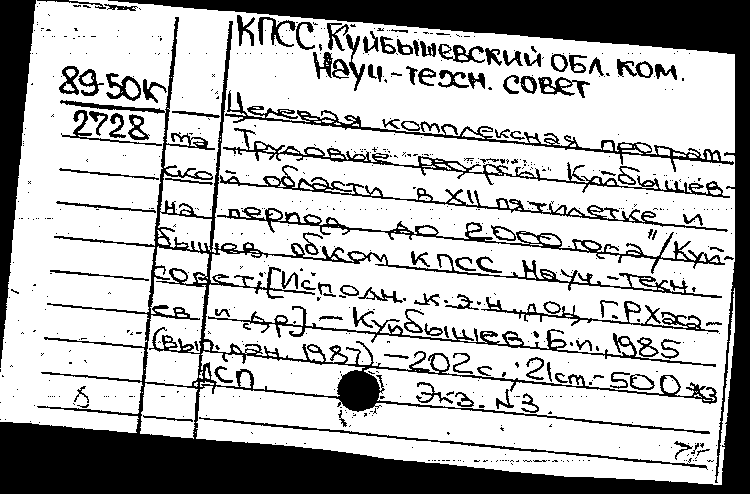 КПСС. Куйбышевский обл. ком.
Науч.-техн. совет
89-50К
2728
Целевая комплексная програм-
ма "Трудовые ресурсы Куйбышев-
ской области в XII пятилетке и
на период до 2000 года"/Куй-
бышев. обком КПСС. Науч.-техн.
совет; [Исполн. к.э.н., доц. Г.Р. Хаса-
ев и др]. - Куйбышев: Б.и., 1985
(вып. дан. 1987). - 202 с.; 21 см. - 500 экз
ДСП. Экз. N3.
8